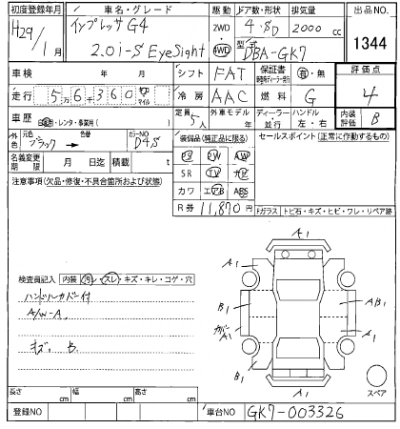 初度登録年月 車名・グレード 駆動 ドア数・形状 排気量 出品NO.
H29/1月 インプレッサ G4 2WD 4・SD 2000 cc 1344
2.0i-S EyeSight 4WD 型式 DBA-GK7
車検 年 月 シフト FAT 保証書 有・無 評価点
走行 5万6千360 km マイル 冷房 AAC 燃料 G 4
車歴 自家・レンタ・事業用( ) 定員 5人 外車モデル 年 ディーラー 並行 ハンドル 左・右 内装評価 B
外色 元色 ブラック → 色替 カラーNO D4S 装備品(純正品に限る) セールスポイント(正常に作動するもの)
名義変更期限 月 日迄 積載 t PS PW AW
注意事項(欠品・修復・不具合箇所および状態) SR TV ナビ
カワ エアB ABS
R券 11,870円 Fガラス トビ石・キズ・ヒビ・ワレ・リペア跡
A1
A1 A1
検査員記入 内装 汚レ・スレ・キズ・キレ・コゲ・穴
ハンドルカバー付 B1 AB1
A/W-A. A1 A1
キズ. B. B1 A1
A1 スペア
長さ cm 幅 cm 高さ cm
登録NO 車台NO GK7-003326